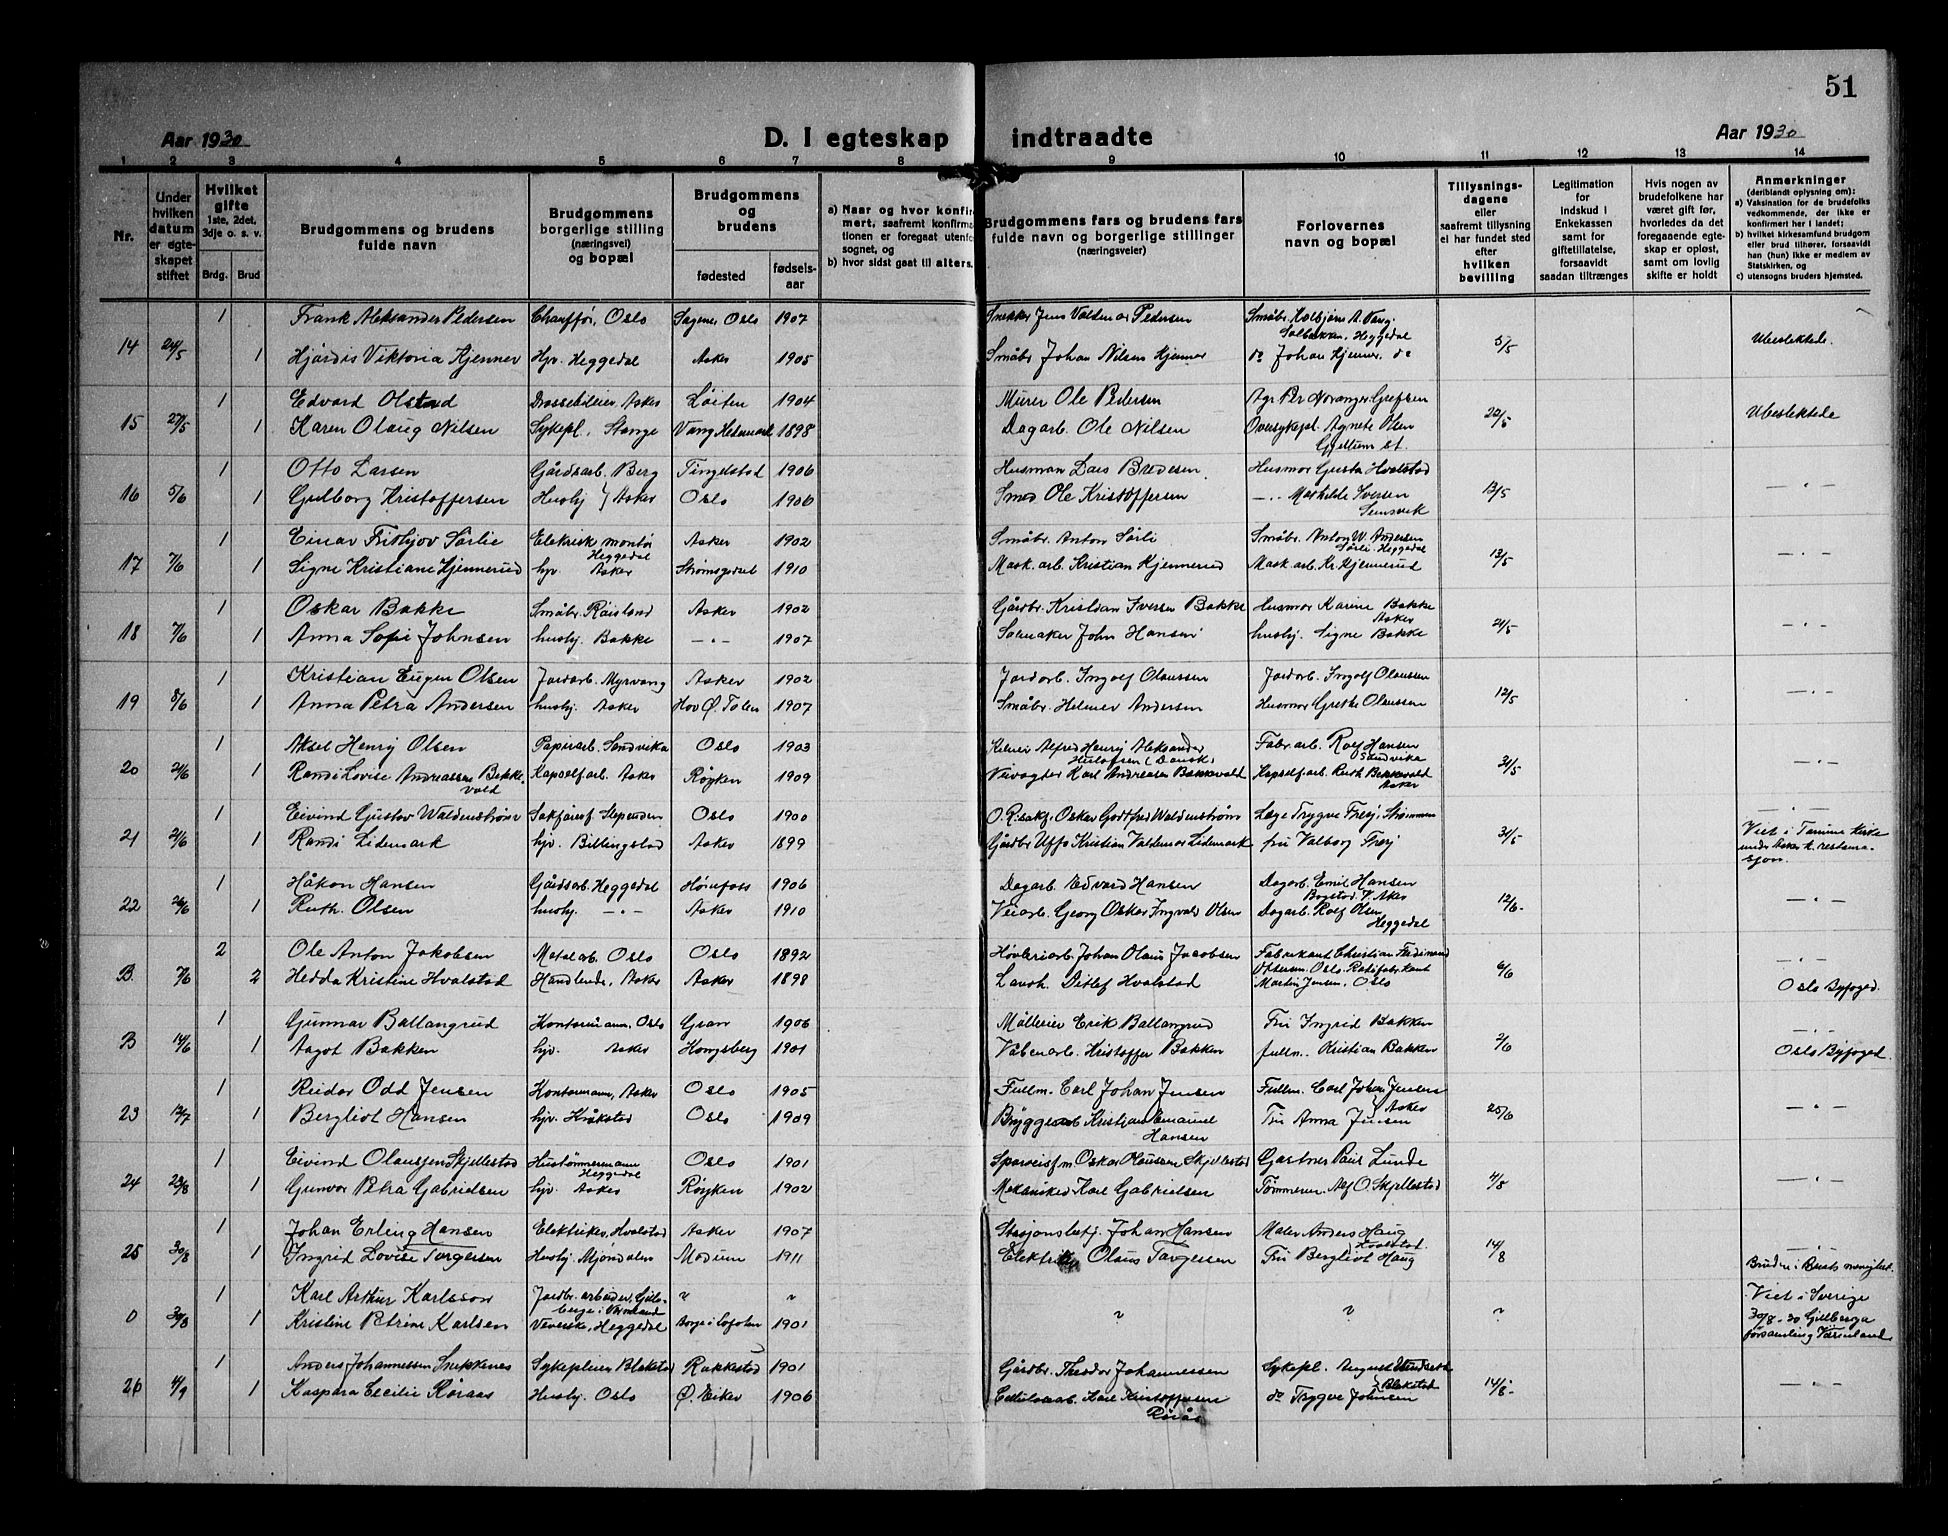 51
Aar 1930
D. I egteskap indtraadte
Aar 1930
1 2 3 4 5 6 7 8 9 10 11 12 13 14
Nr.
Under hvilken datum er egteskapet stiftet
Hvilket gifte 1ste, 2det, 3dje o. s. v.
Brdg. Brud
Brudgommens og brudens fulde navn
Brudgommens borgerlige stilling (næringsvei) og bopæl
Brudgommens og brudens
fødested
fødsels-aar
a) Naar og hvor konfirmert, saafremt konfirmationen er foregaat utenfor sognet, og
b) hvor sidst gaat til alters.
Brudgommens fars og brudens fars fulde navn og borgerlige stillinger (næringsveier)
Forlovernes navn og bopæl
Tillysnings-dagene eller saafremt tillysning ei har fundet sted efter hvilken bevilling
Legitimation for Indskud i Enkekassen samt for giftetillatelse, forsaavidt saadan tiltrænges
Hvis nogen av brudefolkene har været gift før, hvorledes da det foregaaende egteskap er opløst, samt om lovlig skifte er holdt
Anmerkninger (deriblandt oplysning om): a) Vaksination for de brudefolks vedkommende, der ikke er konfirmert her i landet; b) hvilket kirkesamfund brudgom eller brud tilhører, forsaavidt han (hun) ikke er medlem av Statskirken, og c) utensogns bruders hjemsted.
1 Frank Aleksander Pedersen Chauffør, Oslo Sagene, Oslo 1907 Snekker Jens Valdemar Pedersen Småbr. Kolbjørn A. Vang, Solbakken, Heggedal
14 24/5 1 Hjørdis Viktoria Kjenner Hjv. Heggedal Asker 1905 Småbr. Johan Nilsen Kjenner do Johan Kjenner, do 5/5 Ubeslektede.
1 Edvard Olstad Drossebileier, Asker Løiten 1904 Murer Ole Pedersen Agr. Per Noranger, Grefsen
15 27/5 1 Karen Olaug Nilsen Sykepl. Stange Vang Hedemark 1898 Dagarb. Ole Nilsen Oversykepl. Agnete Olsen Gjettum st. 22/5 Ubeslektede
1 Otto Larsen Gårdsarb. Berg Tingelstad 1906 Husman Lars Bredesen Husmor Gusta Hvalstad
16 5/6 1 Gulborg Kristoffersen Husbj. Asker Oslo 1906 Smed Ole Kristoffersen -"- Mathilde Iversen Semsvik 13/5 -"-
1 Einar Frithjov Sørlie Elektrisk montør Heggedal Asker 1902 Småbr. Anton Sørli Småbr. Anton W. Andersen Sørli, Heggedal
17 7/6 1 Signe Kristiane Kjennerud hjv. Asker Strømsgodset 1910 Mask. arb. Kristian Kjennerud Mask. arb. Kr. Kjennerud 13/5 -"-
1 Oskar Bakke Småbr. Røisland Asker 1902 Gårdbr. Kristian Iversen Bakke Husmor Karine Bakke Asker
18 7/6 1 Anna Sofie Johnsen husbj. Bakke -"- 1907 Salmaker John Hansen husbj. Signe Bakke 21/5 -"-
1 Kristian Eugen Olsen Jordarb. Myrvang Asker 1902 Jordarb. Ingolf Olaussen Jordarb. Ingolf Olaussen
19 8/6 1 Anna Petra Andersen husbj. Asker Hov Ø. Toten 1907 Småbr. Helmer Andersen Husmor Grethe Olaussen 12/5 -"-
1 Aksel Henry Olsen Papirarb. Sandvika Oslo 1903 Kelner Alfred Henrij Aleksander (Dansk) Fabr. arb. Rolf Hansen Sandvika
20 21/6 1 Randi Lovise Andreassen Bakkevold Kapselfarb. Asker Røyken 1909 Veivogter Karl Andreasen Bakkevold Kapself. arb. Ruth Bakkevold Asker 31/5 -"-
1 Eivind Gustav Waldenstrøm Sakførerf. Slependen Oslo 1900 O.R.sakf. Oskar Godtfred Waldenstrøm Læge Trygve Frøij, Strømmen -"-
21 21/6 1 Randi Lidemark hjv. Billingstad Asker 1899 Gårdbr. Uffo Kristian Valdemar Lidemark fru Valborg Frøij 31/5 Viet i Tanum kirke under Asker k. restaurasjon.
1 Håkon Hansen Gårdsarb. Heggedal Hønefoss 1906 Dagarb. Edvard Hansen Dagarb. Emil Hansen Bogstad V. Aker
22 28/6 1 Ruth Olsen husbj. -"- Asker 1910 Veiarb. Georg Oskar Ingvald Olsen Dagarb. Rolf Olsen Heggedal 12/6 -"-
2 Ole Anton Jakobsen Metalarb. Oslo Oslo 1892 Høvleriarb. Johan Olaus Jacobsen Fabrikant Christian Ferdinand -"-
B. 7/6 2 Hedda Kristine Hvalstad Handlende, Asker Asker 1898 Landh. Ditlef Hvalstad Ottesen, Oslo. Martin Jensen, Oslo 6/6 Oslo Byfoged.
1 Gunnar Ballangrud Kontormann, Oslo Gran 1906 Mølleeier Erik Ballangrud Fru Ingrid Bakken -"-
B 14/6 1 Aagot Bakken hjv. Asker Kongsberg 1901 Våbenarb. Kristoffer Bakken fullm. Kristian Bakken 2/6 Oslo Byfoged.
1 Reidar Odd Jensen Kontormann, Asker Oslo 1905 Fullm. Carl Johan Jensen Fullm. Carl Johan Jensen
23 12/7 1 Bergliot Hansen hjv. Kråkstad Oslo 1909 Bryggearb. Kristian Emanuel Hansen Fru Anna Jensen Asker 25/6 -"-
1 Eivind Olaussen Skjellestad Hustømmermann Heggedal Oslo 1901 Sporveisf.m. Oskar Olaussen Skjellestad Gartner Paul Lunde
24 23/8 1 Gunvor Petra Gabrielsen hjv. Asker Røyken 1902 Mekaniker Karl Gabrielsen Tømmerm. Alf O. Skjellestad 4/8 -"-
1 Johan Erling Hansen Elektriker, Hvalstad Asker 1907 Stasjonsbetj. Johan Hansen Maler Anders Haug
25 30/8 1 Ingrid Lovise Torgersen Husbj. Mjøndalen Modum 1911 Elektriker Olaus Torgersen Fru Bergliot Haug Hvalstad. 14/8 -"- Bruden i menighet.
1 Karl Arthur Karlsson Jordbr. arbeider, Gillberga i Värmland " " Viet i Sverige
0 30/8 1 Kristine Petrine Karlsen Veverske, Heggedal Borge i Lofoten 1901 " " " 30/8-30 Gillberga församling Värmland
1 Anders Johannessen Snekkenes Sykepleier Blakstad Rakkestad 1901 Gårdbr. Theodor Johannessen Sykepl. August
26 4/9 1 Kaspara Cecilie Røraas Husbj. Oslo Ø. Eiker 1906 Cellulosearb. Karl Kristoffersen Røraas do Trygve Johnsen Blakstad 14/8 -"-